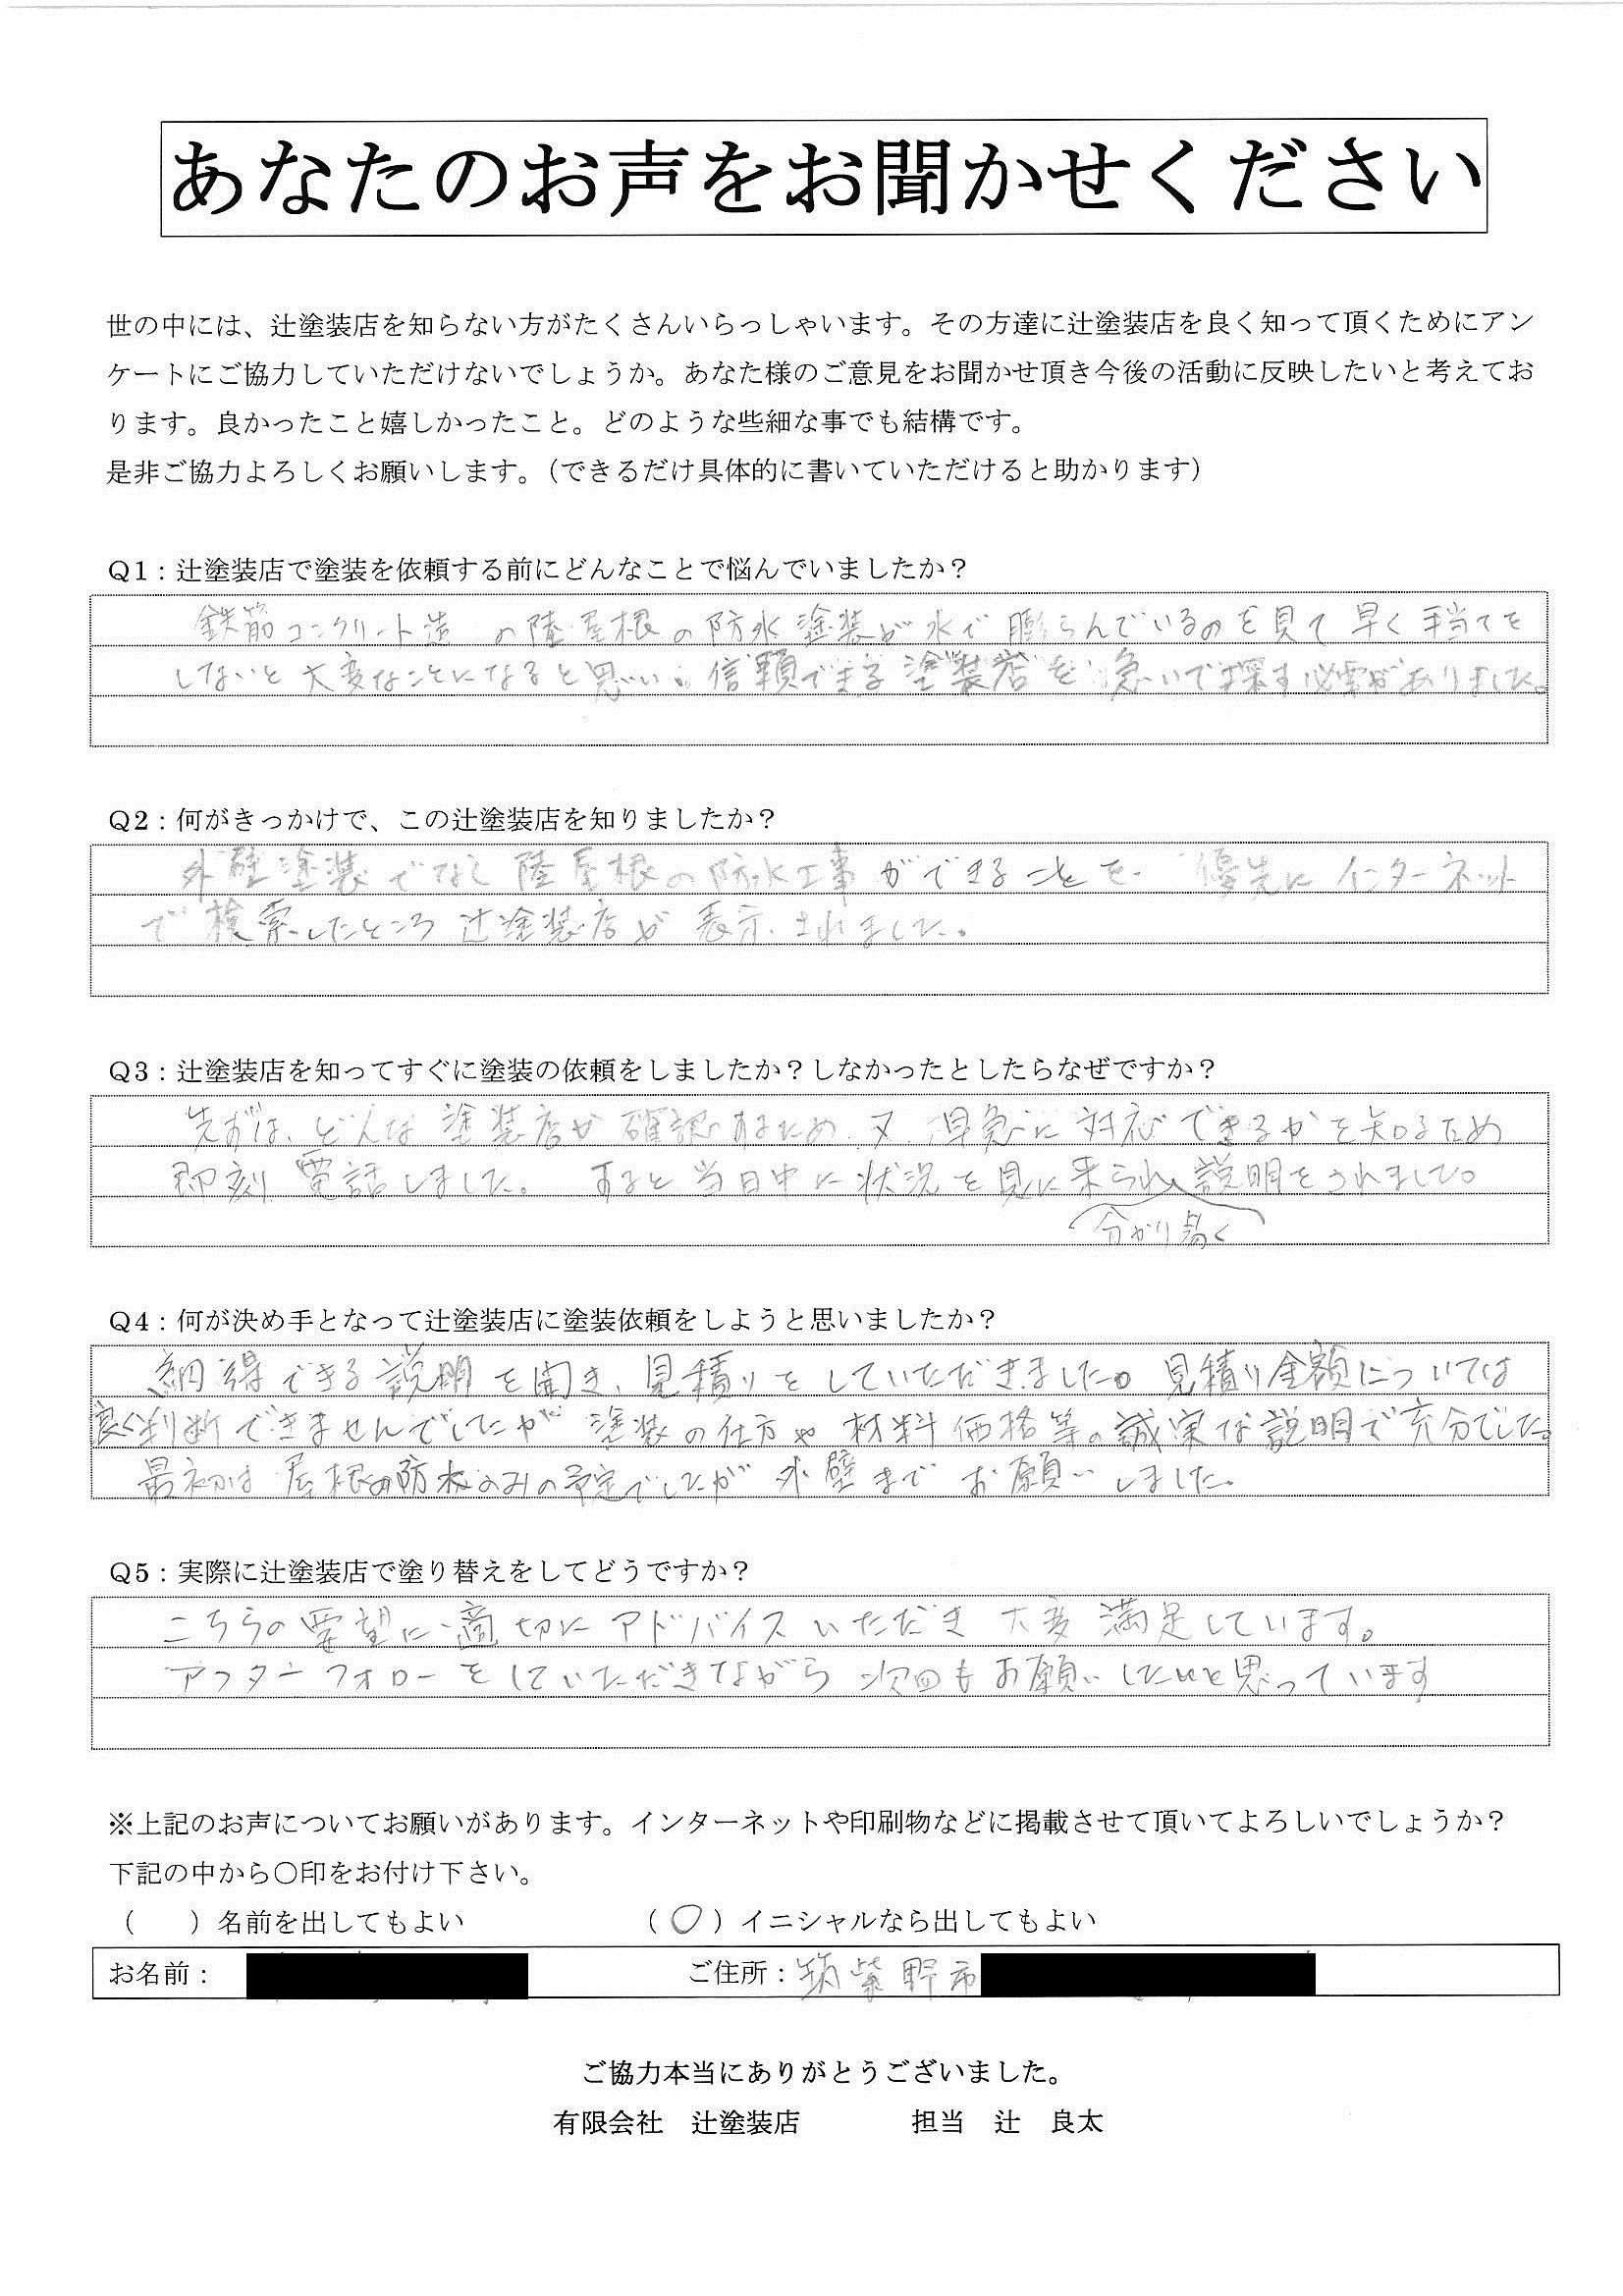 あなたのお声をお聞かせください
世の中には、辻塗装店を知らない方がたくさんいらっしゃいます。その方達に辻塗装店を良く知って頂くためにアン
ケートにご協力していただけないでしょうか。あなた様のご意見をお聞かせ頂き今後の活動に反映したいと考えてお
ります。良かったこと嬉しかったこと。どのような些細な事でも結構です。
是非ご協力よろしくお願いします。（できるだけ具体的に書いていただけると助かります）
Q1：辻塗装店で塗装を依頼する前にどんなことで悩んでいましたか？
鉄筋コンクリート造の陸屋根の防水塗装が水で膨らんでいるのを見て早く手当てを
しないと大変なことになると思い、信頼できる塗装店を急いで探す必要がありました。
Q2：何がきっかけで、この辻塗装店を知りましたか？
外壁塗装でなく陸屋根の防水工事ができることを優先にインターネット
で検索したところ辻塗装店が表示されました。
Q3：辻塗装店を知ってすぐに塗装の依頼をしましたか？しなかったとしたらなぜですか？
先ずは、どんな塗装店か確認するため又、早急に対応できるかを知るため
即刻電話しました。すると当日中に状況を見に来られ説明をされました。
分かり易く
Q4：何が決め手となって辻塗装店に塗装依頼をしようと思いましたか？
納得できる説明を聞き、見積りをしていただきました。見積り金額については
良く判断できませんでしたが塗装の仕方や材料価格等の誠実な説明で充分でした。
最初は屋根の防水のみの予定でしたが外壁までお願いしました。
Q5：実際に辻塗装店で塗り替えをしてどうですか？
こちらの要望に適切にアドバイスいただき大変満足しています。
アフターフォローをしていただきながら次回もお願いしたいと思っています
※上記のお声についてお願いがあります。インターネットや印刷物などに掲載させて頂いてよろしいでしょうか？
下記の中から〇印をお付け下さい。
（　　）名前を出してもよい　　　（〇）イニシャルなら出してもよい
お名前：　　　ご住所：筑紫野市
ご協力本当にありがとうございました。
有限会社　辻塗装店　　　担当　辻　良太